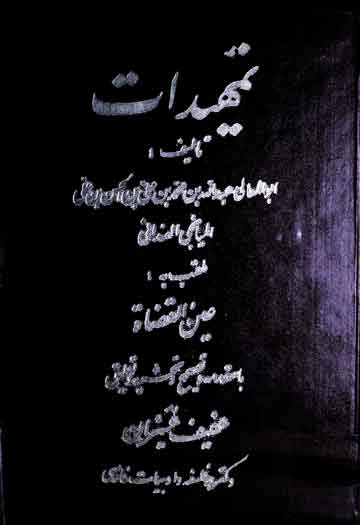 تمهیدات
تالیف:
ابوالمعالی عبدالله بن محمد بن علی بن الحسن بن علی
المیانجی الهمدانی
ملقب به:
عین‌القضاة
با مقدمه و تصحیح و تحشیه و تعلیق
عفیف عسیران
دکتر در فلسفه و ادبیات فارسی